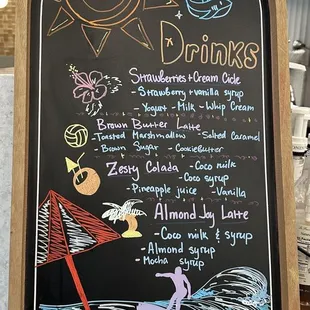 Drinks
Strawberries + Cream Cicle
- Strawberry + vanilla syrup
- Yogurt - Milk - Whip Cream
Brown Butter Latte
- Toasted Marshmallow - Salted Caramel
- Brown Sugar - Cookie Butter
Zesty Colada - Coco milk
- Coco syrup
- Pineapple juice - Vanilla
Almond Joy Latte
- Coco milk & syrup
- Almond syrup
- Mocha syrup